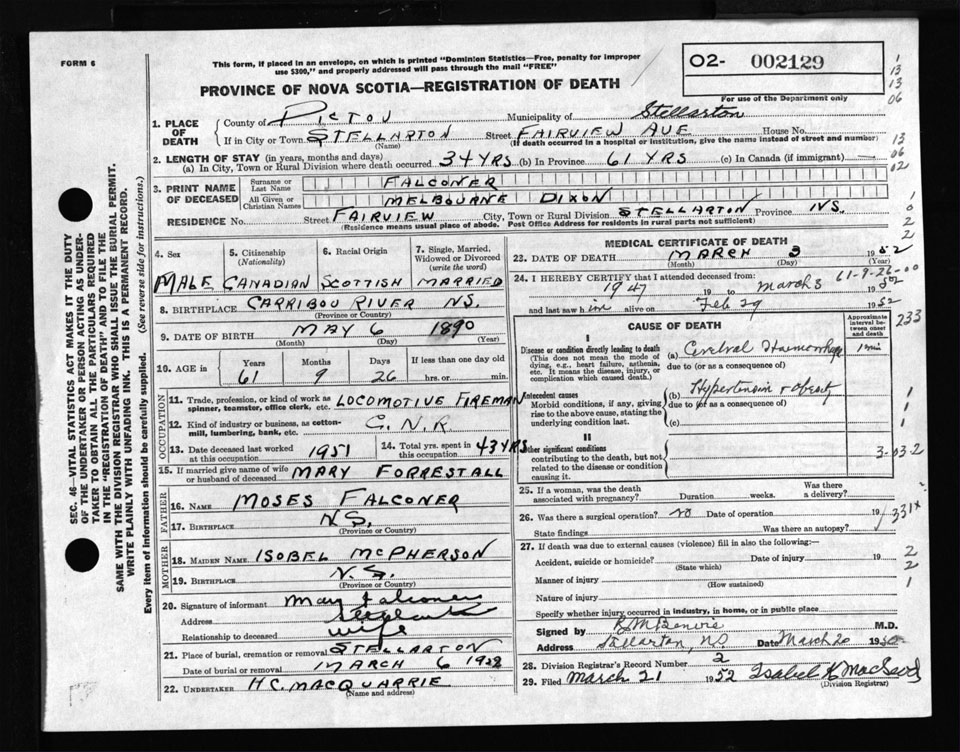 FORM 6
This form, if placed in an envelope, on which is printed "Dominion Statistics—Free, penalty for improper
use $300," and properly addressed will pass through the mail "FREE"
PROVINCE OF NOVA SCOTIA—REGISTRATION OF DEATH
O2- 002129
For use of the Department only
1. PLACE OF DEATH
County of PICTOU Municipality of Stellarton
If in City or Town STELLARTON Street FAIRVIEW AVE House No.
(Name) (If death occurred in a hospital or institution, give the name instead of street and number)
2. LENGTH OF STAY (in years, months and days)
(a) In City, Town or Rural Division where death occurred 34 YRS (b) In Province 61 YRS (c) In Canada (if immigrant) —
3. PRINT NAME OF DECEASED
Surname or Last Name FALCONER
All Given or Christian Names MELBOURNE DIXON
RESIDENCE No. Street FAIRVIEW City, Town or Rural Division STELLARTON Province N.S.
(Residence means usual place of abode. Post Office Address for residents in rural parts not sufficient)
4. Sex 5. Citizenship (Nationality) 6. Racial Origin 7. Single, Married, Widowed or Divorced (write the word)
MALE CANADIAN SCOTTISH MARRIED
8. BIRTHPLACE CARRIBOU RIVER NS.
(Province or Country)
9. DATE OF BIRTH MAY 6 1890
(Month) (Day) (Year)
10. AGE in Years Months Days If less than one day old
61 9 26 hrs. or min.
OCCUPATION
11. Trade, profession, or kind of work as spinner, teamster, office clerk, etc. LOCOMOTIVE FIREMAN
12. Kind of industry or business, as cotton-mill, lumbering, bank, etc. C.N.R.
13. Date deceased last worked at this occupation 1951 14. Total yrs. spent in this occupation 43 YRS
15. If married give name of wife or husband of deceased MARY FORRESTALL
FATHER
16. NAME MOSES FALCONER
17. BIRTHPLACE N.S.
(Province or Country)
MOTHER
18. MAIDEN NAME ISOBEL McPHERSON
19. BIRTHPLACE N.S.
(Province or Country)
20. Signature of informant May Falconer
Address
Relationship to deceased wife
21. Place of burial, cremation or removal STELLARTON
Date of burial or removal MARCH 6 19
22. UNDERTAKER H.C. MACQUARRIE
(Name and address)
MEDICAL CERTIFICATE OF DEATH
23. DATE OF DEATH MARCH 3 1952
(Month) (Day) (Year)
61-9-26-00
24. I HEREBY CERTIFY that I attended deceased from:
1947 19 to March 3 1952
and last saw h im alive on Feb 29 1952
CAUSE OF DEATH
Approximate interval between onset and death
I
Disease or condition directly leading to death (a) Cerebral Haemorrhage 1 min
(This does not mean the mode of dying, e.g., heart failure, asthenia, etc. It means the disease, injury, or complication which caused death.)
due to (or as a consequence of)
Antecedent causes (b) Hypertension
Morbid conditions, if any, giving rise to the above cause, stating the underlying condition last.
due to (or as a consequence of)
(c)
II
Other significant conditions
contributing to the death, but not related to the disease or condition causing it.
3-03-2
25. If a woman, was the death associated with pregnancy? Duration weeks. Was there a delivery?
26. Was there a surgical operation? no Date of operation 19
State findings Was there an autopsy?
27. If death was due to external causes (violence) fill in also the following:—
Accident, suicide or homicide? Date of injury 19
(State which)
Manner of injury
(How sustained)
Nature of injury
Specify whether injury occurred in industry, in home, or in public place
Signed by M.D.
Address Stellarton, N.S. Date March 20 19
28. Division Registrar's Record Number 2
29. Filed March 21 1952 Isabel K MacLeod
(Division Registrar)
1
13
13
06
13
06
02
233
331X
SEC. 46—VITAL STATISTICS ACT MAKES IT THE DUTY
OF THE UNDERTAKER OR PERSON ACTING AS UNDER-
TAKER TO OBTAIN ALL THE PARTICULARS REQUIRED
IN THE "REGISTRATION OF DEATH" AND TO FILE THE
SAME WITH THE DIVISION REGISTRAR WHO SHALL ISSUE THE BURIAL PERMIT.
WRITE PLAINLY WITH UNFADING INK. THIS IS A PERMANENT RECORD.
Every item of information should be carefully supplied. (See reverse side for instructions.)